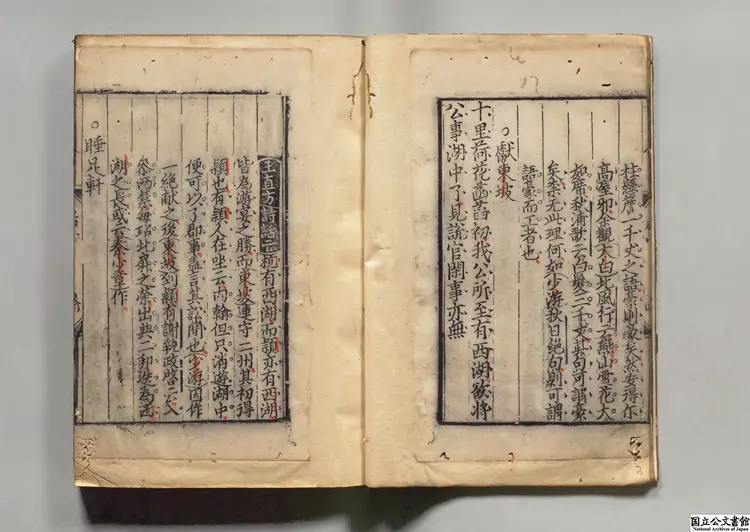 挂懸簷一千丈之語豪則豪矣然安得尓
高屋卯金觀太白北風行云燕山雪花大
如席秋浦歌云白髮三千丈其句可謂豪
矣柰无此理何如少游秋日絶句則可謂
語豪而工者也
○獻東坡
十里荷花菡萏初我公所至有西湖欲將
公事湖中了見說官閑事亦無
王直方詩話云杭有西湖而頴亦有西湖
皆為游宴之勝而東坡連守二州其初得
頴也有頴人在坐云内翰但只消遊湖中
便可以了郡事盖言其訟簡也少游因作
一絶献之後東坡到頴有謝執政啓云入
叅兩禁每玷北扉之榮出典二邦迭為西
湖之長或云秦少章作
○睡足軒
国立公文書館
National Archives of Japan